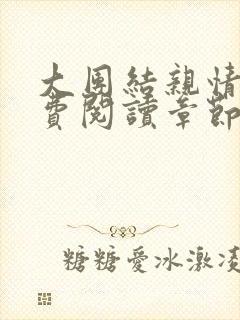 大团結親情
費閱讀章節
糖糖愛冰激凌